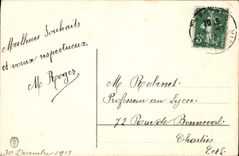 Meilleurs Souhaits
et voeux respectueux
M Roger
M Robinet
Professeur au Lycée
72 Rue de Bonneval
Chartres
E et L
30 Decembre 1913